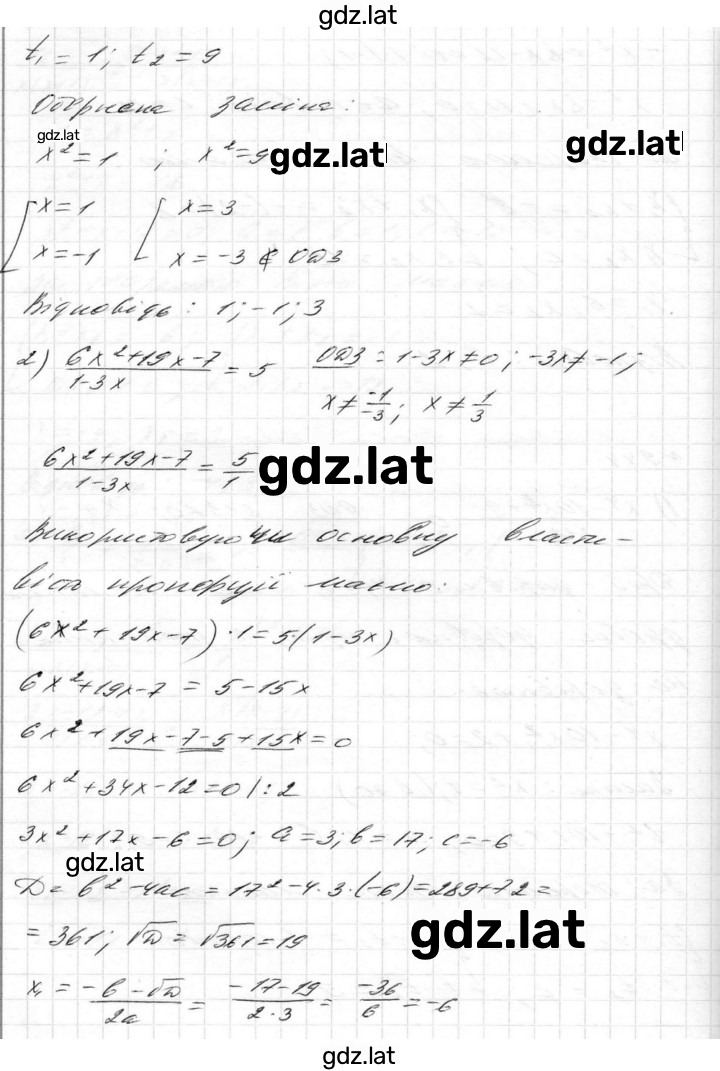 gdz.lat
t₁ = 1; t₂ = 9
Обернена заміна:
gdz.lat
x² = 1 ; x² = 9
gdz.lat
gdz.lat
[ x = 1 [ x = 3
x = -1 x = -3 ∉ ОДЗ
Відповідь: 1; -1; 3
2) (6x² + 19x - 7)/(1 - 3x) = 5 ОДЗ: 1 - 3x ≠ 0; -3x ≠ -1;
x ≠ -1/-3; x ≠ 1/3
(6x² + 19x - 7)/(1 - 3x) = 5/1
gdz.lat
Використовуючи основну власти-
вість пропорції маємо:
(6x² + 19x - 7) · 1 = 5 · (1 - 3x)
6x² + 19x - 7 = 5 - 15x
6x² + 19x - 7 - 5 + 15x = 0
6x² + 34x - 12 = 0 | : 2
3x² + 17x - 6 = 0; a = 3; b = 17; c = -6
gdz.lat
D = b² - 4ac = 17² - 4 · 3 · (-6) = 289 + 72 =
= 361; √D = √361 = 19
gdz.lat
x₁ = (-b - √D)/2a = (-17 - 19)/(2 · 3) = -36/6 = -6
gdz.lat